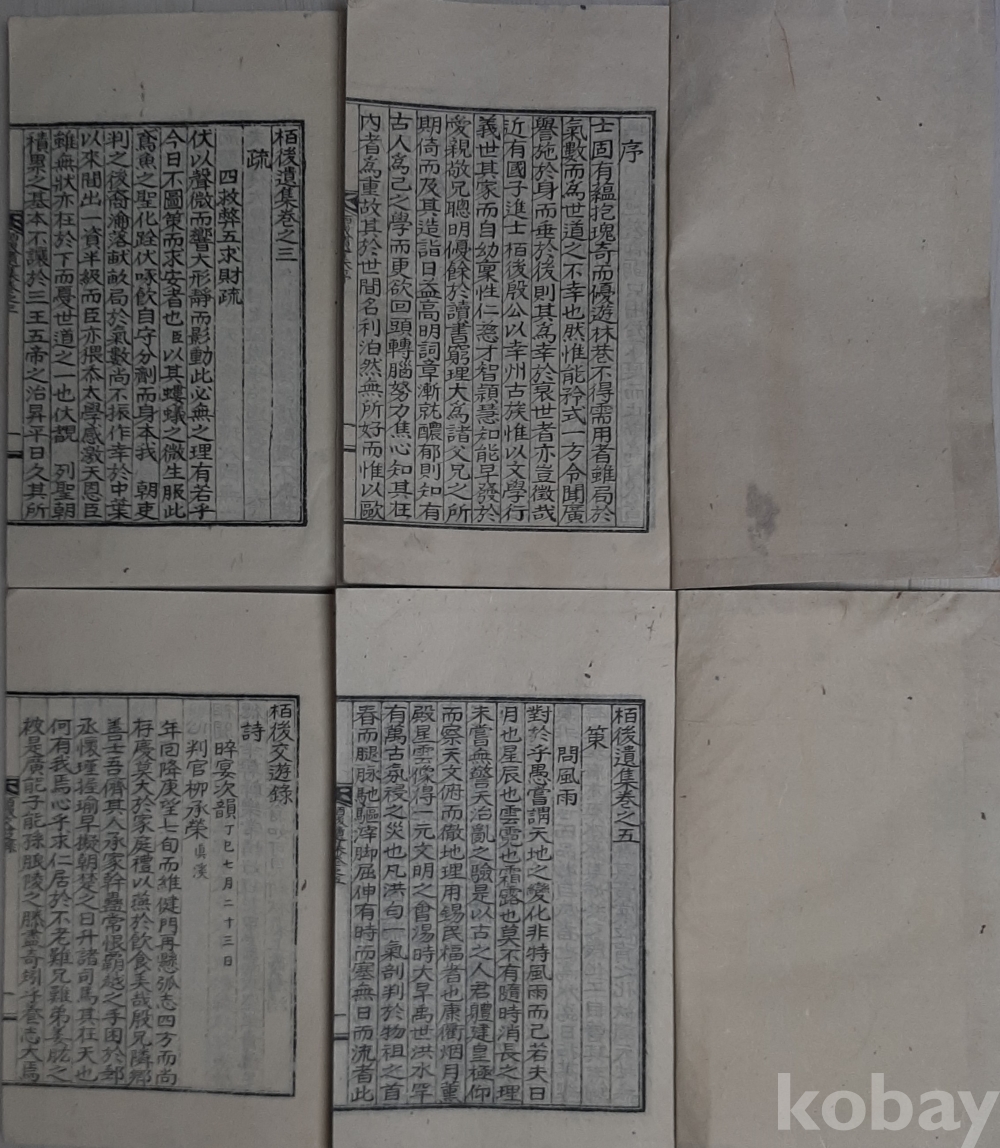 序
士固有蘊抱瑰奇而優遊林巷不得需用者雖局於
氣數而為世道之不幸也然惟能矜式一方令聞廣
譽施於身而垂於後則其為幸於衰世者亦豈徵哉
近有國子進士栢後殷公以幸州古族惟以文學行
義世其家而自幼稟性仁慈才智頴慧知能早發於
愛親敬兄聰明優餘於讀書窮理大為諸父兄之所
期倚而及其造詣日益高明詞章漸就醲郁則知有
古人為己之學而更欲回頭轉腦努力焦心知其在
內者為重故其於世間名利泊然無所好而惟以歐
栢後遺集卷之三
疏
四救弊五求財疏
伏以聲微而響大形靜而影動此必無之理有若乎
今日不圖策而求安者也臣以其螻蟻之微生服此
鳶魚之聖化跧伏啄飲自守分劑而身本我 朝吏
判之後裔淪落畎畝局於氣數尚不振作幸於中葉
以來間出一資半級而臣亦猥忝太學感激天恩臣
雖無狀亦在於下而憂世道之一也伏覩 列聖朝
積累之基本不讓於三王五帝之治昇平日久其所
栢後遺集卷之五
策
問風雨
對於乎愚嘗謂天地之變化非特風雨而已若夫日
月也星辰也雲霓也霜露也莫不有隨時消長之理
未嘗無警天治亂之驗是以古之人君體建皇極仰
而察天文俯而徹地理用錫民福者也康衢烟月薰
殿星雲像得一元文明之會湯時大旱禹世洪水罕
有萬古氛祲之災也凡洪匀一氣剖判於物祖之首
春而腿脉馳驅滓脚屈伸有時而塞無日而流者此
栢後交遊錄
詩
晬宴次韻 丁巳七月二十三日
判官柳承榮 眞溪
年回降庚望七旬而維健門再懸弧志四方而尚
存慶莫大於家庭禮以燕於飲食美哉殷兄隣鄉
善士吾儕其人承家幹蠱常恨霸越之手困於郵
丞懷瑾握瑜早擬朝楚之日升諸司馬其在天也
何有我焉心乎求仁居於不老難兄難弟姜肱之
被是廣能子能孫
kobay